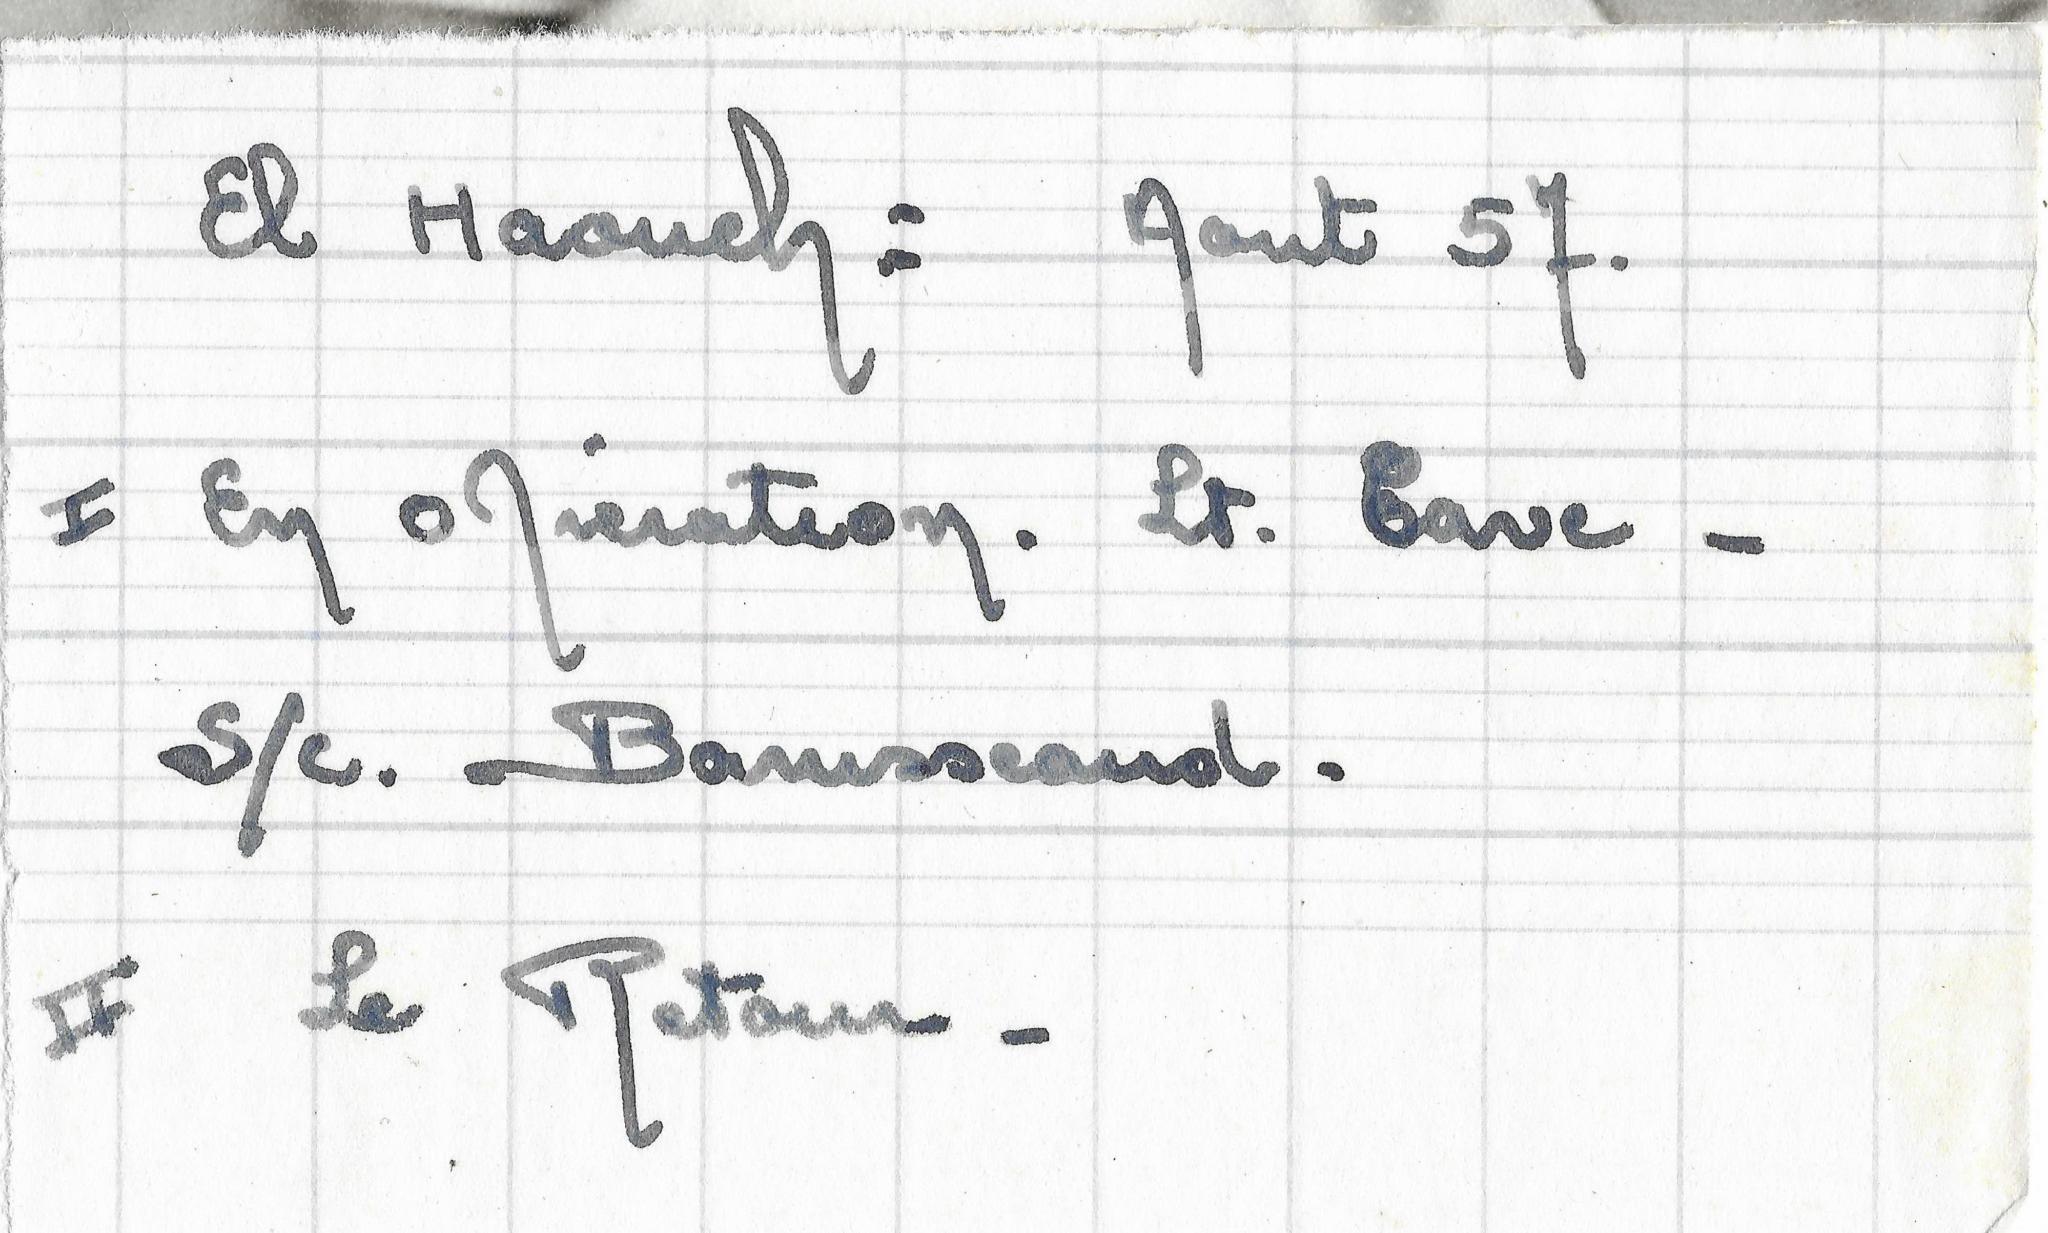 El Haouch : Aout 57.
I En opération. Lt. Cave -
S/c. Barusseaud.
II Le Retour -